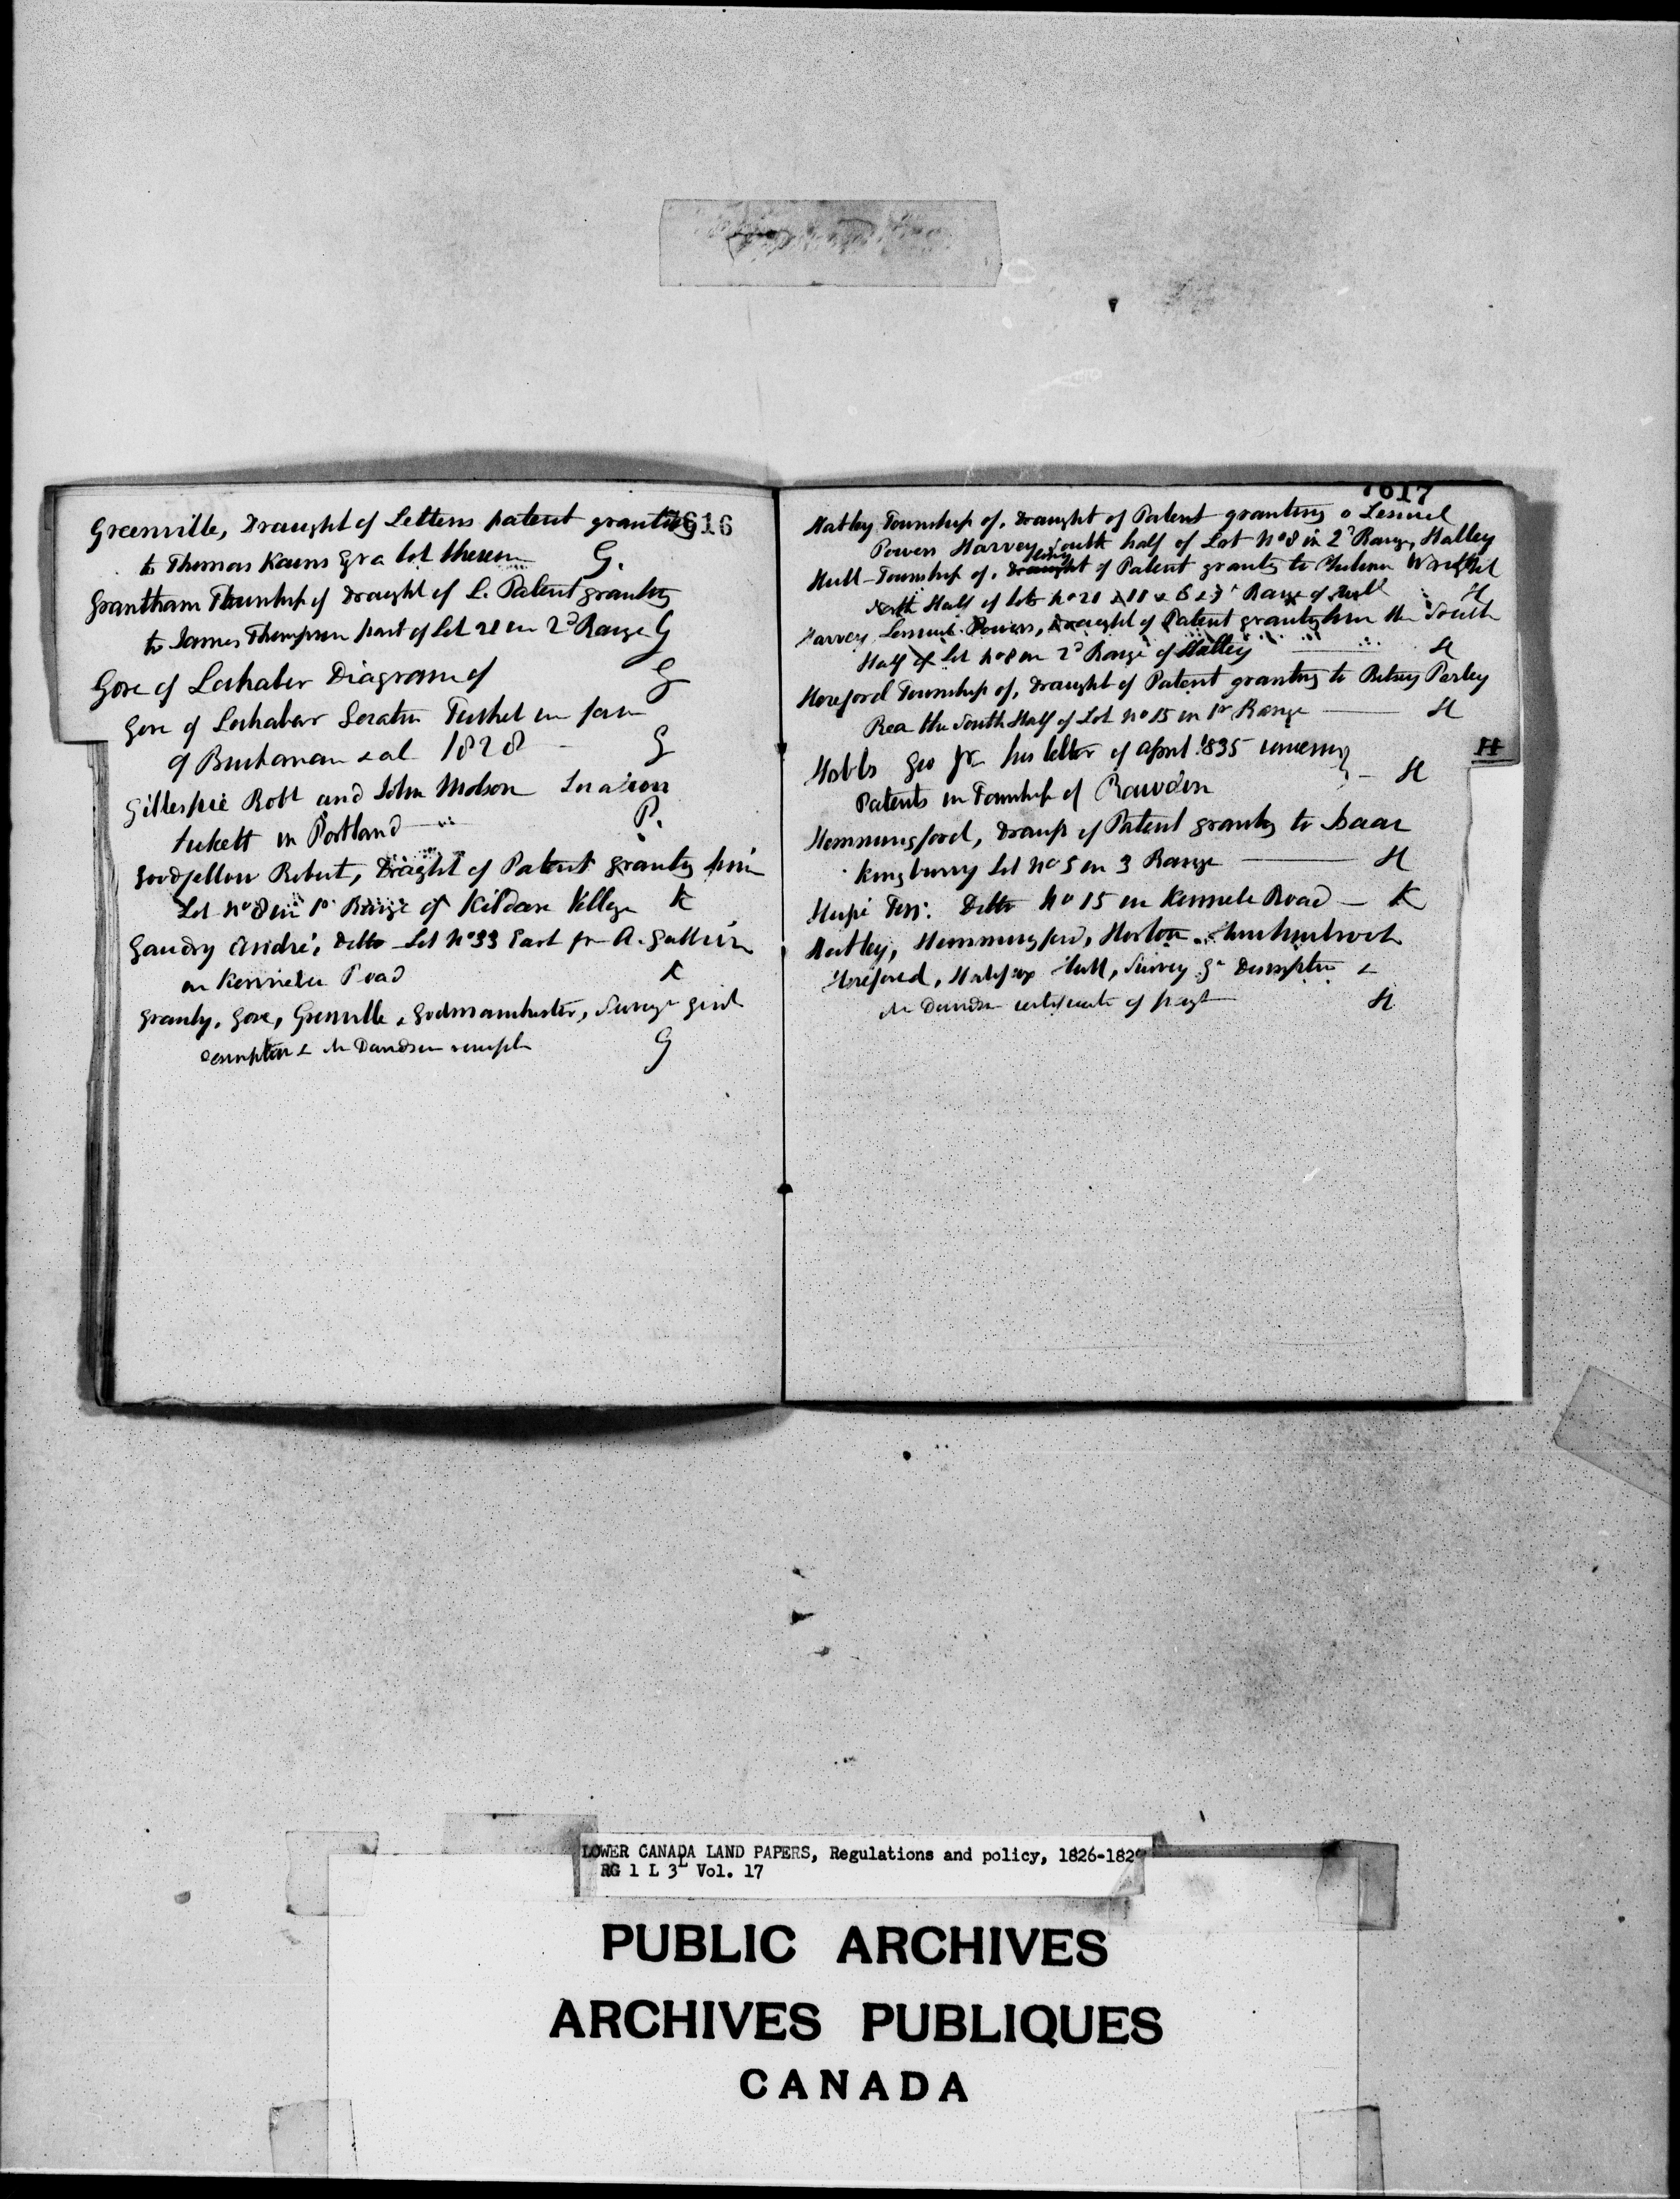 616
Greenville, Draught of Letters patent granting
to Thomas Kains Esqr a lot therein G.
Grantham Township of Draught of L. Patent granting
to James Thompson part of Lot 21 in 2d Range G
Gore of Lochaber Diagram of G
Gore of Lochaber Location Ticket in favr
of Buchanan & al 1828 G
Gillespie Robt and John Molson Location
tickett in Portland P.
Goodfellow Robert, Draght of Patent granting him
Lot No 8 in 1r Range of Kildare Village K
Gaudry André, Ditto Lot No 33 East
on Kennebec Road K
Granby, Gore, Grenville & Godmanchester, Survr Genl
description & Mr Davidson G
1617
Hatley Township of, Draught of Patent granting to Lemuel
Powers Harvey South half of Lot No 8 in 2d Range, Hatley
Hull Township of, Draught of Patent granting to Wright
North Half of lots No Range of Hull H
Harvey Lemuel Powers, Draught of Patent granting him the South
Half of Lot No 8 in 2d Range of Hatley H
Hereford Township of, Draught of Patent granting to Betsey Perley
Rea the South Half of Lot No 15 in 1r Range H
Hobbs Geo his letter of April 1835 concerning
Patents in Township of Rawdon H
H
Hemmingford, Draught of Patent granting to Isaac
Kingsbury Lot No 5 in 3 Range H
Ditto No 15 on Kennebec Road K
Hatley, Hemmingford, Horton, Hinchinbrook
Hereford, Halifax Hull, Survey Gl Description &
Mr Davidson certificate of H
LOWER CANADA LAND PAPERS, Regulations and policy, 1826-182
RG 1 L 3L Vol. 17
PUBLIC ARCHIVES
ARCHIVES PUBLIQUES
CANADA